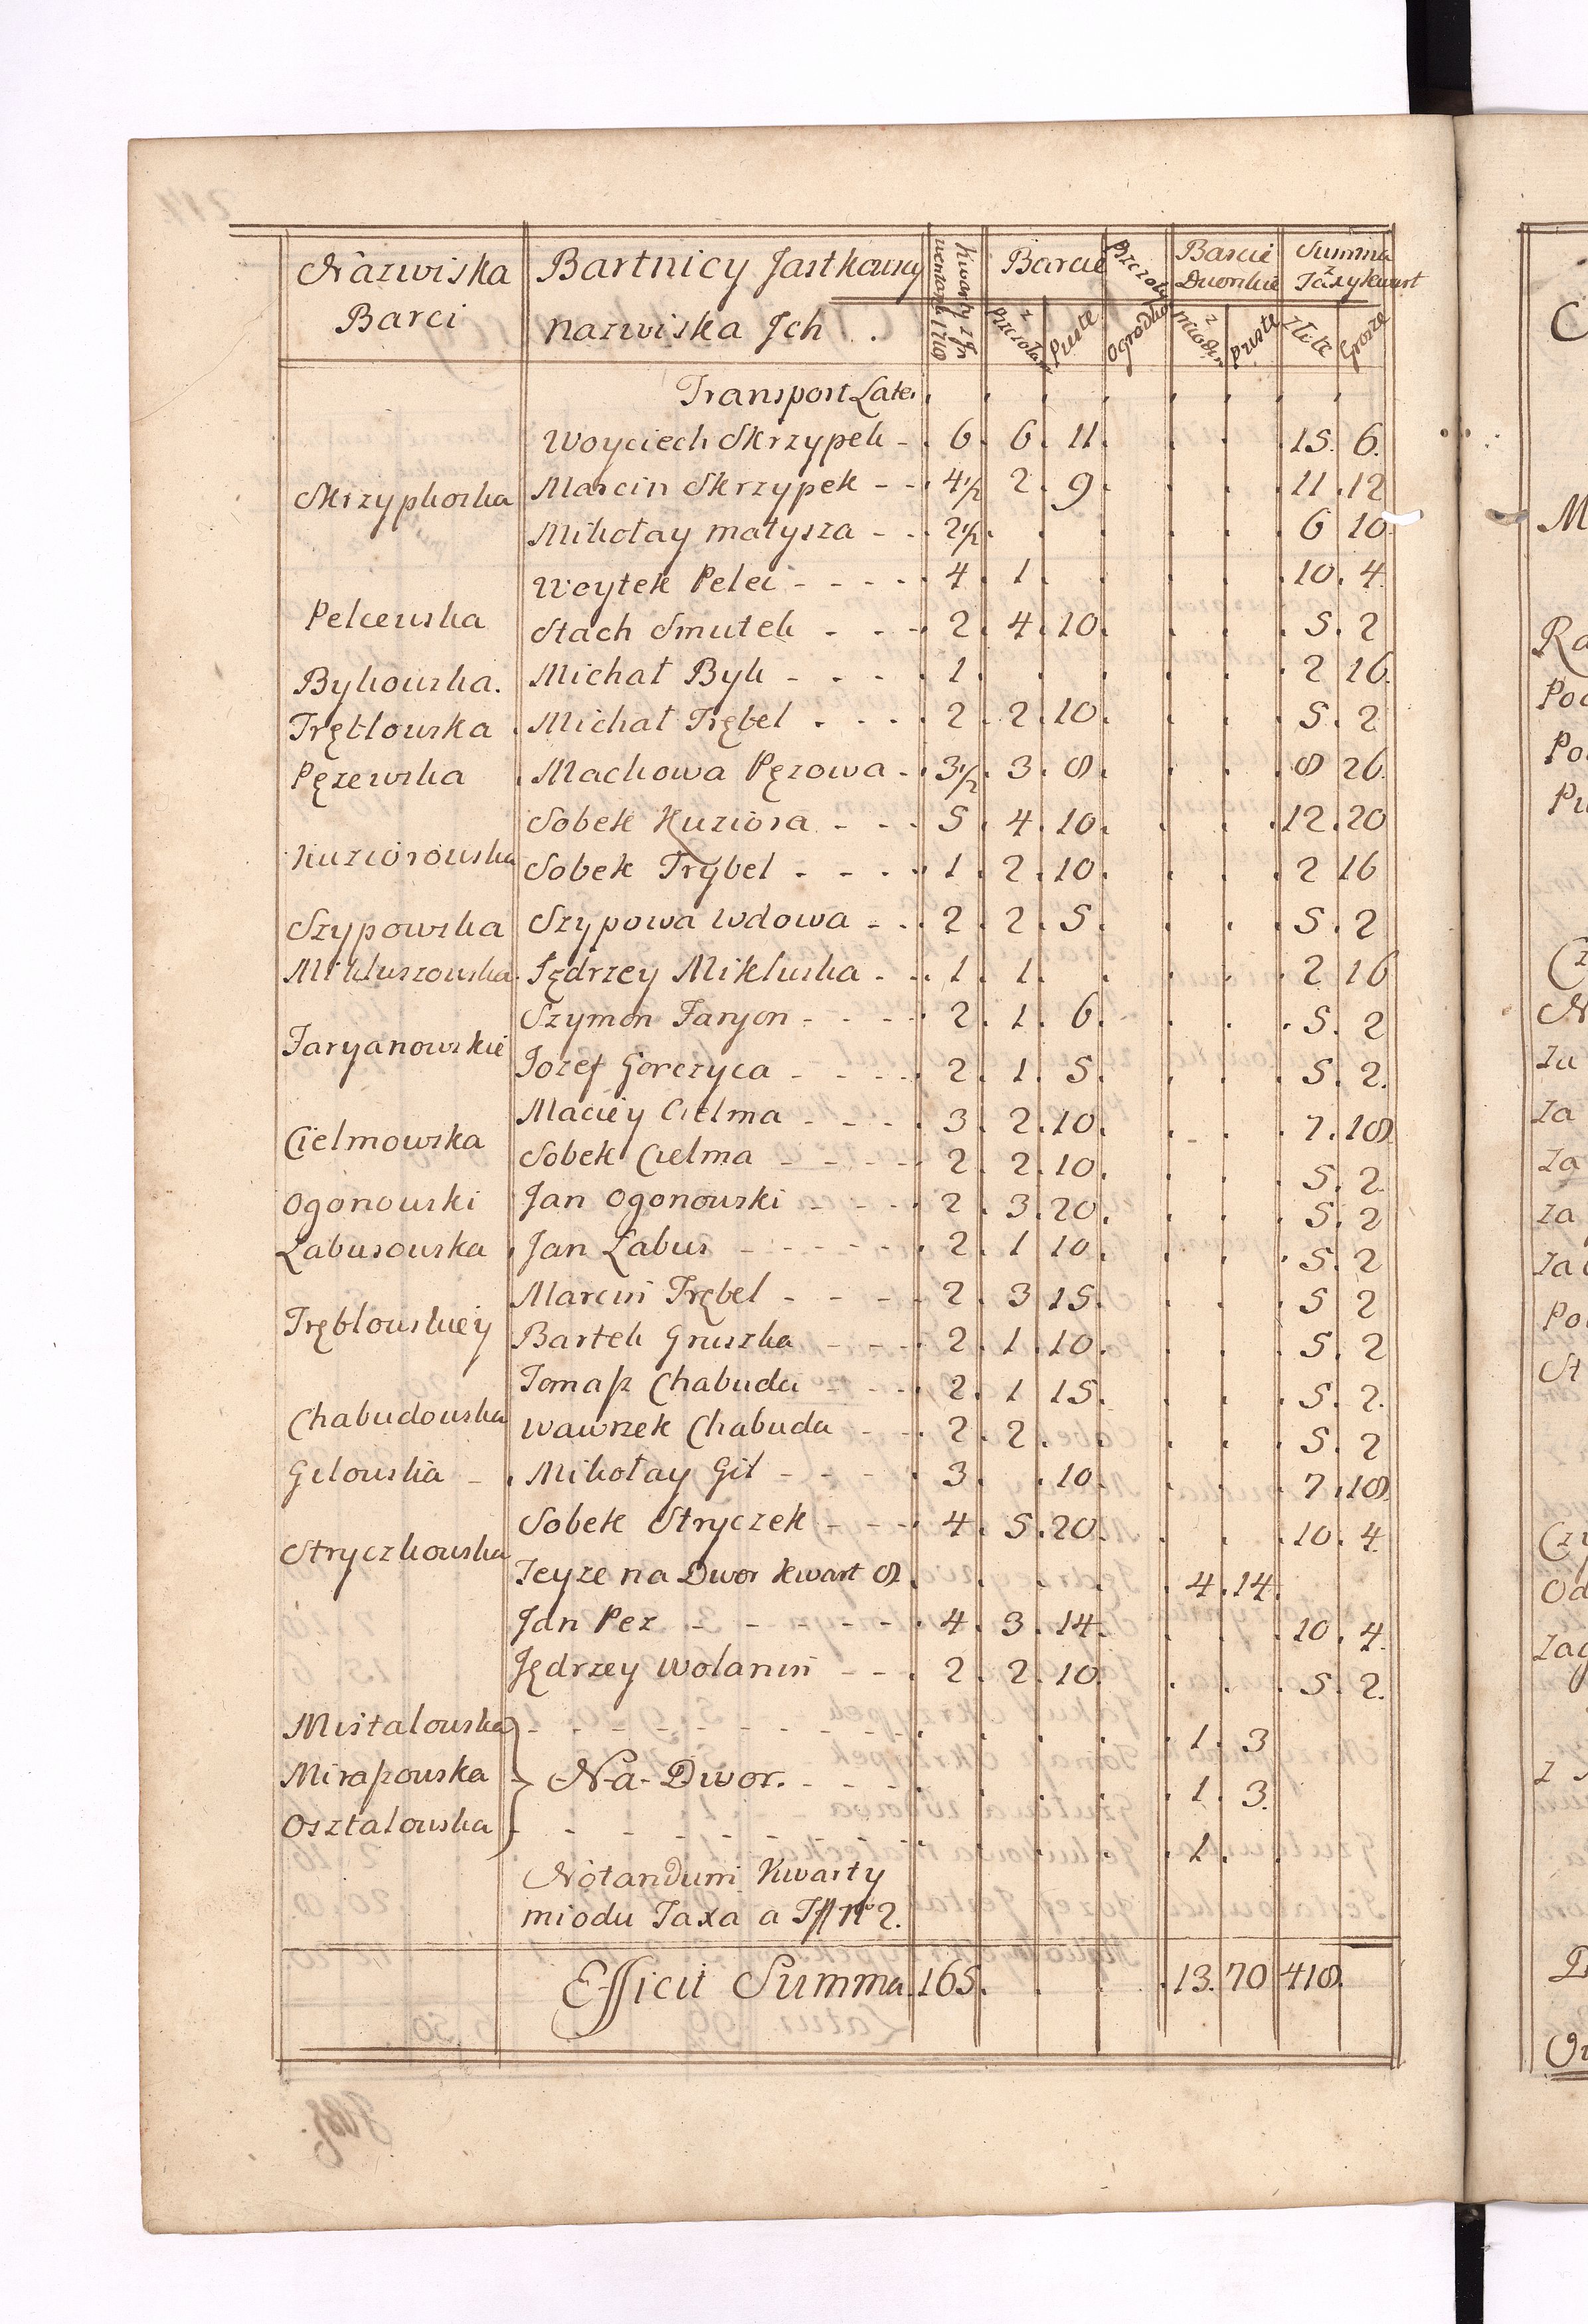 Nazwiska Barci | Bartnicy Jastkowscy nazwiska Jch . | Kwarty z In wentarza 1710 | Barcie z pszczołami | Puste | Pszczoły Ogrodka | Barcie Dworskie z miodem | puste | Summa z Taxy kwart Złote | Grosze
Transport Late.
Woyciech Skrzypek - 6 6 11 15 6
Skrzypkoska Marcin Skrzypek - - 4 1/2 2 9 11 12
Mikołay matysza - - 2 1/2 6 10
Woytek Pelci - - - - 4 1 10 4
Pelcewska
Stach Smutek - - - 2 4 10 5 2
Bykowska. Michał Byk - - - 1 2 16
Trętlowska Michał Trębel - - - 2 2 10 5 2
Pęzewska Machowa Pęzowa - 3 1/2 3 8 8 26
Sobek Kuziora - - - 5 4 10 12 20
Kuziorowska
Sobek Trybel - - - 1 2 10 2 16
Szypowska Szypowa wdowa - - 2 2 5 5 2
Mikluszowska Jędrzey Mikluska - - 1 1 2 16
Szymon Faryon - - - 2 1 6 5 2
Faryanowskie
Jozef Gorczyca - - - - 2 1 5 5 2
Maciey Cielma - - - 3 2 10 7 18
Cielmowska
Sobek Cielma - - - - 2 2 10 5 2
Ogonowski Jan Ogonowski - - - 2 3 20 5 2
Labusowska Jan Labus - - - - - 2 1 10 5 2
Marcin Trębel - - - - 2 3 15 5 2
Tręblowskiey
Bartek Gruszka - - - 2 1 10 5 2
Tomasz Chabuda - - - 2 1 15 5 2
Chabudowska
Wawrzek Chabuda - - 2 2 5 2
Gilowska - Mikołay Gil - - - 3 10 7 18
Sobek Stryczek - - - 4 5 20 10 4
Stryczkowska
Teyże na Dwor kwart 8 4 14
Jan Pez - - - - - 4 3 14 10 4
Jędrzey Wolanin - - 2 2 10 5 2
Mistalowska 1 3
Miraszowska } Na Dwor. - - - 1 3
Osztalowska 1
Notandum Kwarty
miodu Taxa a Tff no 2.
Efficit Summa 165 13 70 418